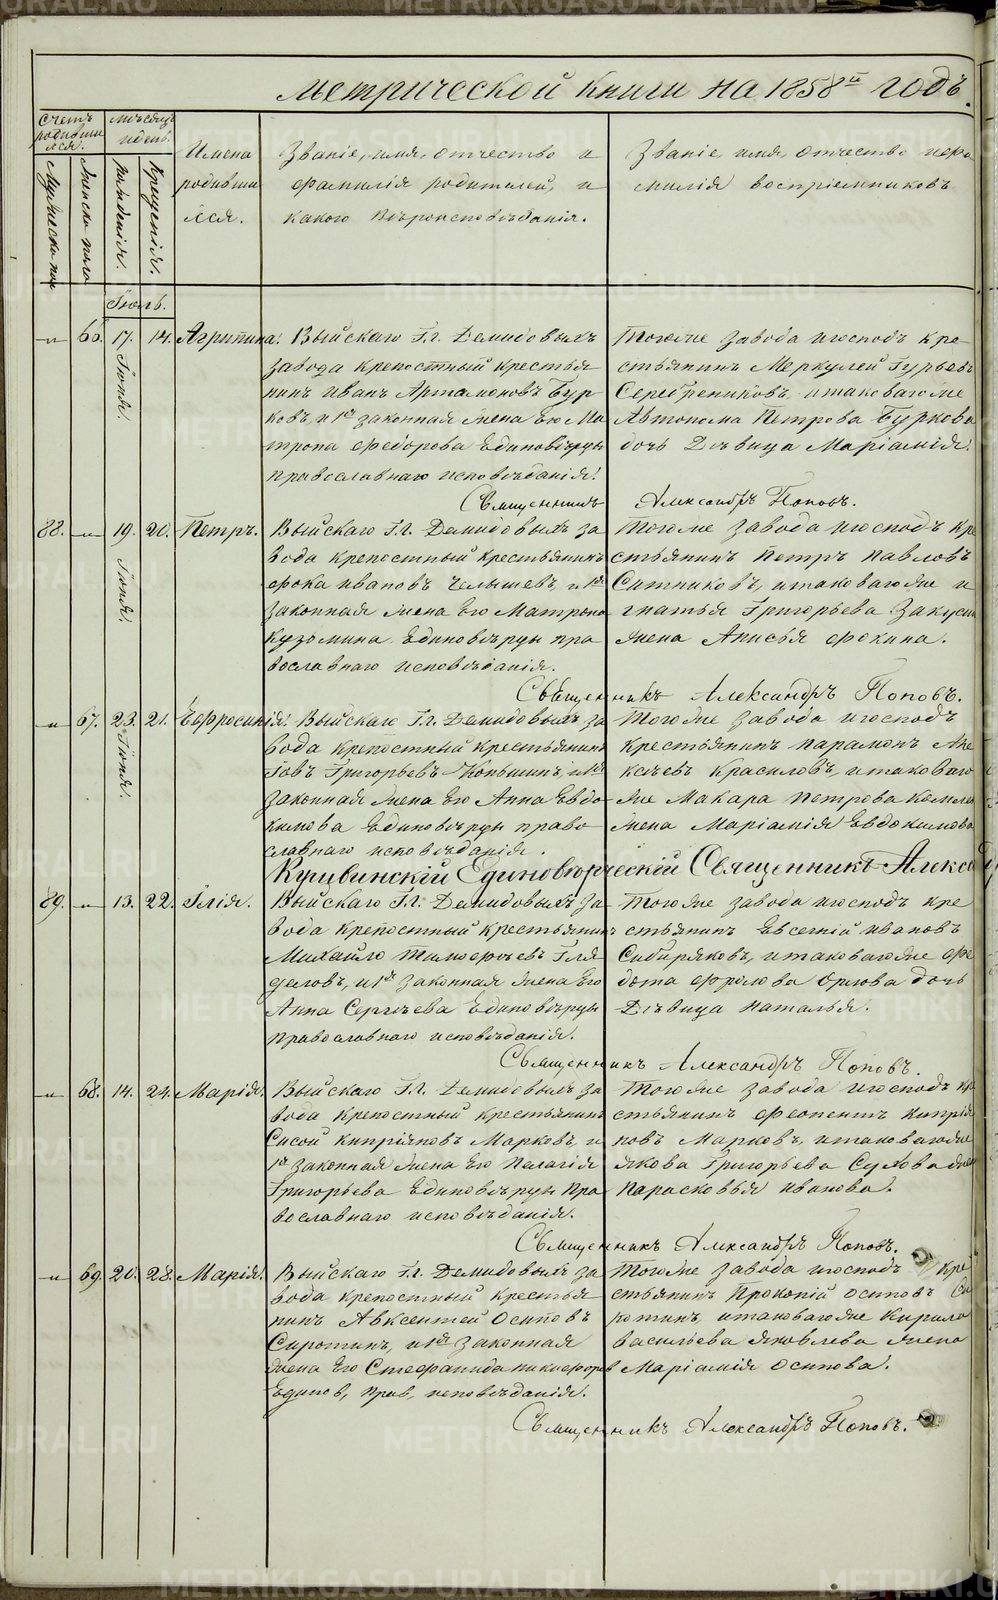 метрической книги на 1858й годъ.
Счетъ родившихся.
Мужеска пола
Женска пола
Мѣсяцъ и день.
Рожденія.
Крещенія.
Имена родившихся.
Званіе, имя, отчество и
фамилія родителей, и
какого вѣроисповѣданія.
Званіе, имя, отчество и фа
милія воспріемниковъ
Іюль.
66. 17. Іюня. 14. Агрипина.
Выйскаго Гг. Демидовыхъ
завода крепостный крестья
нинъ Иванъ Артамоновъ Бур
ковъ, и 1я законная жена Его Ма
трона Федорова Единовѣрцы
православнаго исповѣданія.
Тогоже завода и господъ кре
стьянинъ Меркулей Гурьевъ
Серебрениковъ, и таковагоже
Автонома Петрова Буркова
дочь Дѣвица Маріамія.
Священникъ Александръ Поповъ.
88. 19. Іюня. 20. Петръ.
Выйскаго Гг. Демидовыхъ за
вода крепостный крестьянинъ
Фока Ивановъ Челышевъ, и 1я
законная жена Его Матрона
Кузьмина Единовѣрцы пра
вославнаго исповѣданія.
Тогоже завода и господъ кре
стьянинъ Петръ Павловъ
Ситниковъ, и таковагоже И
гнатья Григорьева
жена Анисья Фокина.
Священникъ Александръ Поповъ.
67. 23. Іюня. 21. Евфросинія.
Выйскаго Гг. Демидовыхъ за
вода крепостный крестьянинъ
Іовъ Григорьевъ Копышинъ, и 1я
законная жена Его Анна Евдо
кимова Единовѣрцы право
славнаго исповѣданія.
Тогоже завода и господъ
крестьянинъ Парамонъ Але
ксѣевъ Красиловъ, и таковаго
же Макара Петрова
жена Маріамія Евдокимова
Кушвинскій Единовѣрческій Священникъ Алекса
89. 13. 22. Илія.
Выйскаго Гг. Демидовыхъ за
вода крепостный крестьянинъ
Михайло Тимофѣевъ Гля
деловъ, и 1я законная жена Его
Анна Сергѣева Единовѣрцы
православнаго исповѣданія.
Тогоже завода и господъ кре
стьянинъ Евсегній Ивановъ
Сибиряковъ, и таковагоже Фе
дота Фролова Орлова дочь
Дѣвица Наталья.
Священникъ Александръ Поповъ.
68. 14. 24. Марія.
Выйскаго Гг. Демидовыхъ за
вода крепостный крестьянинъ
Сисой Кипріяновъ Марковъ, и
1я законная жена Его Пелагія
Григорьева Единовѣрцы пра
вославнаго исповѣданія.
Тогоже завода и господъ кре
стьянинъ Феопентъ Кипрія
новъ Марковъ, и таковагоже
Якова Григорьева Сухова жена
Парасковья Иванова.
Священникъ Александръ Поповъ.
69. 20. 28. Марія.
Выйскаго Гг. Демидовыхъ за
вода крепостный крестья
нинъ Авксентей Осиповъ
Сиротинъ, и 1я законная
жена Его Стефанида Никифоров
Единов, прав, исповѣданія.
Тогоже завода и господъ кре
стьянинъ Прокопій Осиповъ Си
ротинъ, и таковагоже Кирила
Васильева Яковлева жена
Маріамія Осипова.
Священникъ Александръ Поповъ.
METRIKI.GASO-URAL.RU